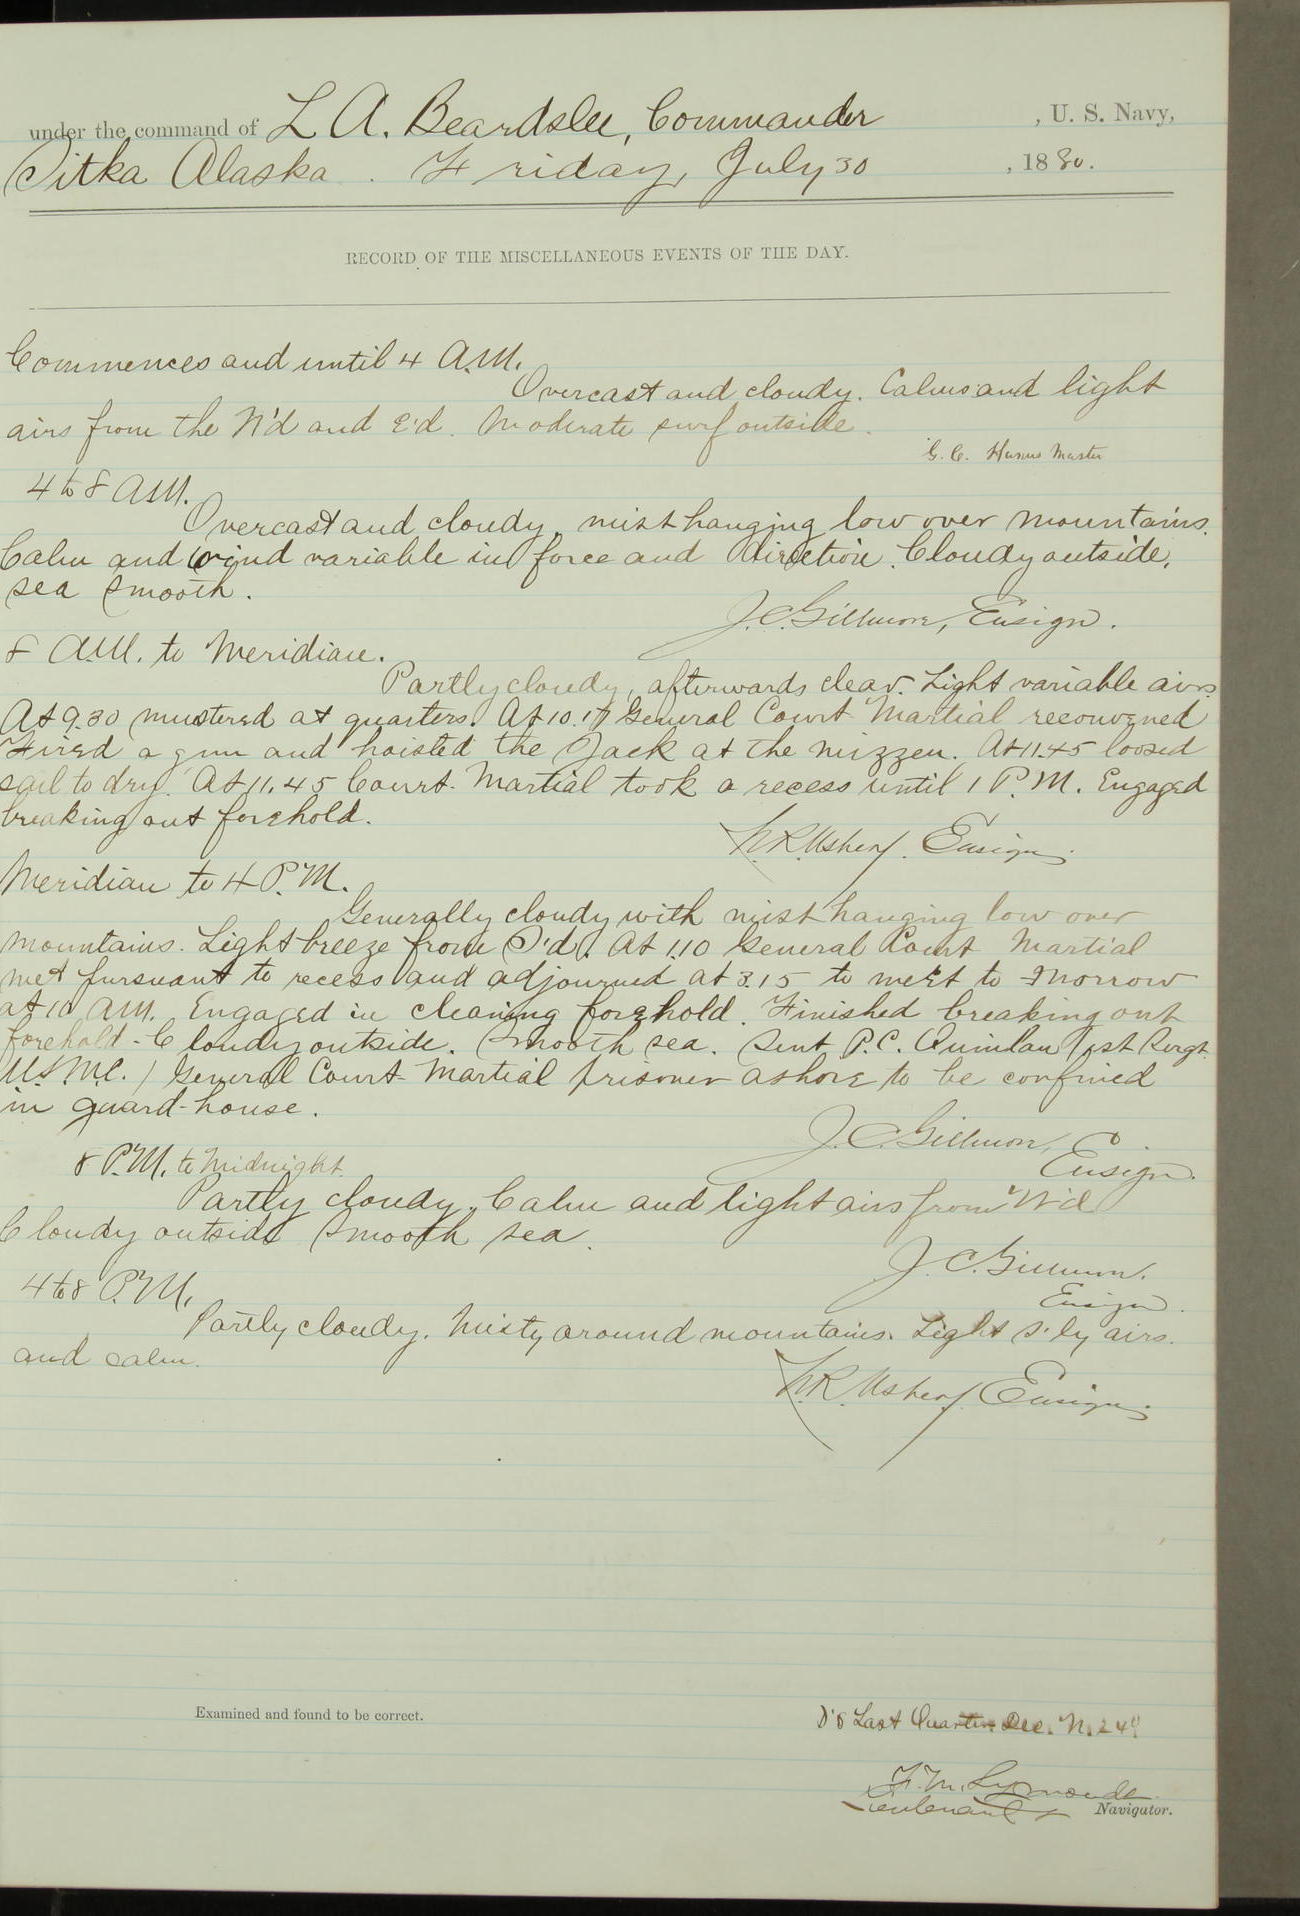 under the command of L. A. Beardslee, Commander, U. S. Navy,
Sitka Alaska. Friday, July 30, 1880.
RECORD OF THE MISCELLANEOUS EVENTS OF THE DAY.
Commences and until 4 A.M.
Overcast and cloudy. Calms and light
airs from the N'd and E'd. Moderate surf outside.
G. C. Hanus Master
4 to 8 A.M.
Overcast and cloudy, mist hanging low over mountains.
Calm and wind variable in force and direction. Cloudy outside,
sea smooth.
J. C. Gillmore, Ensign.
8 A.M. to Meridian.
Partly cloudy, afterwards clear. Light variable airs.
At 9.30 mustered at quarters. At 10.17 General Court Martial reconvened
Fired a gun and hoisted the Jack at the mizzen. At 11.45 loosed
sail to dry. At 11.45 Court-Martial took a recess until 1 P.M. Engaged
breaking out forehold.
N. R. Usher, Ensign.
Meridian to 4 P.M.
Generally cloudy with mist hanging low over
mountains. Light breeze from S'd. At 1.10 General Court Martial
met pursuant to recess and adjourned at 3.15 to meet to-morrow
at 10 A.M. Engaged in cleaning forehold. Finished breaking out
forehold. Cloudy outside. Smooth sea. Sent P. C. Quinlan 1st Sergt.
U.S.M.C. General Court-Martial prisoner ashore to be confined
in guard-house.
J. C. Gillmore,
Ensign.
8 P.M. to Midnight.
Partly cloudy. Calm and light airs from W'd
Cloudy outside smooth sea.
J. C. Gillmore.
Ensign.
4 to 8 P.M.
Partly cloudy. Misty around mountains. Light S'ly airs.
and calm.
N. R. Usher, Ensign.
Examined and found to be correct.
Last Quarter Dec. N. 24°
F. M. Symonds
Lieutenant & Navigator.